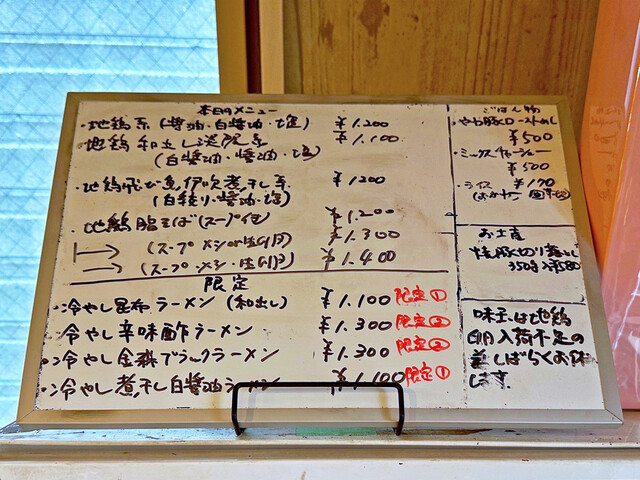 本日のメニュー
・地鶏系(醤油・白醤油・塩) ¥1.200
地鶏和出し淡麗系 ¥1.100
(白醤油・醤油・塩)
・地鶏飛び魚,伊吹煮干し系 ¥1200
(白絞り・醤油・塩)
・地鶏脂そば(スープ付) ¥1.200
(スープ メシor生 ¥1.300
(スープ・メシ・生 ¥1.400
限定
・冷やし昆布ラーメン(和出し) ¥1.100 限定①
・冷やし辛味酢ラーメン ¥1.300 限定②
・冷やし金胡ブラックラーメン ¥1.300 限定②
・冷やし煮干し白醤油ラーメン ¥1.100 限定①
ごはん物
・やわ豚ロースト
¥500
・ミックスチャーシュー
¥500
・ライス ¥170
(おかわり
お土産
豚切り落とし
350g入¥580
味玉は地鶏
卵入荷不足の
為しばらくお休
します.